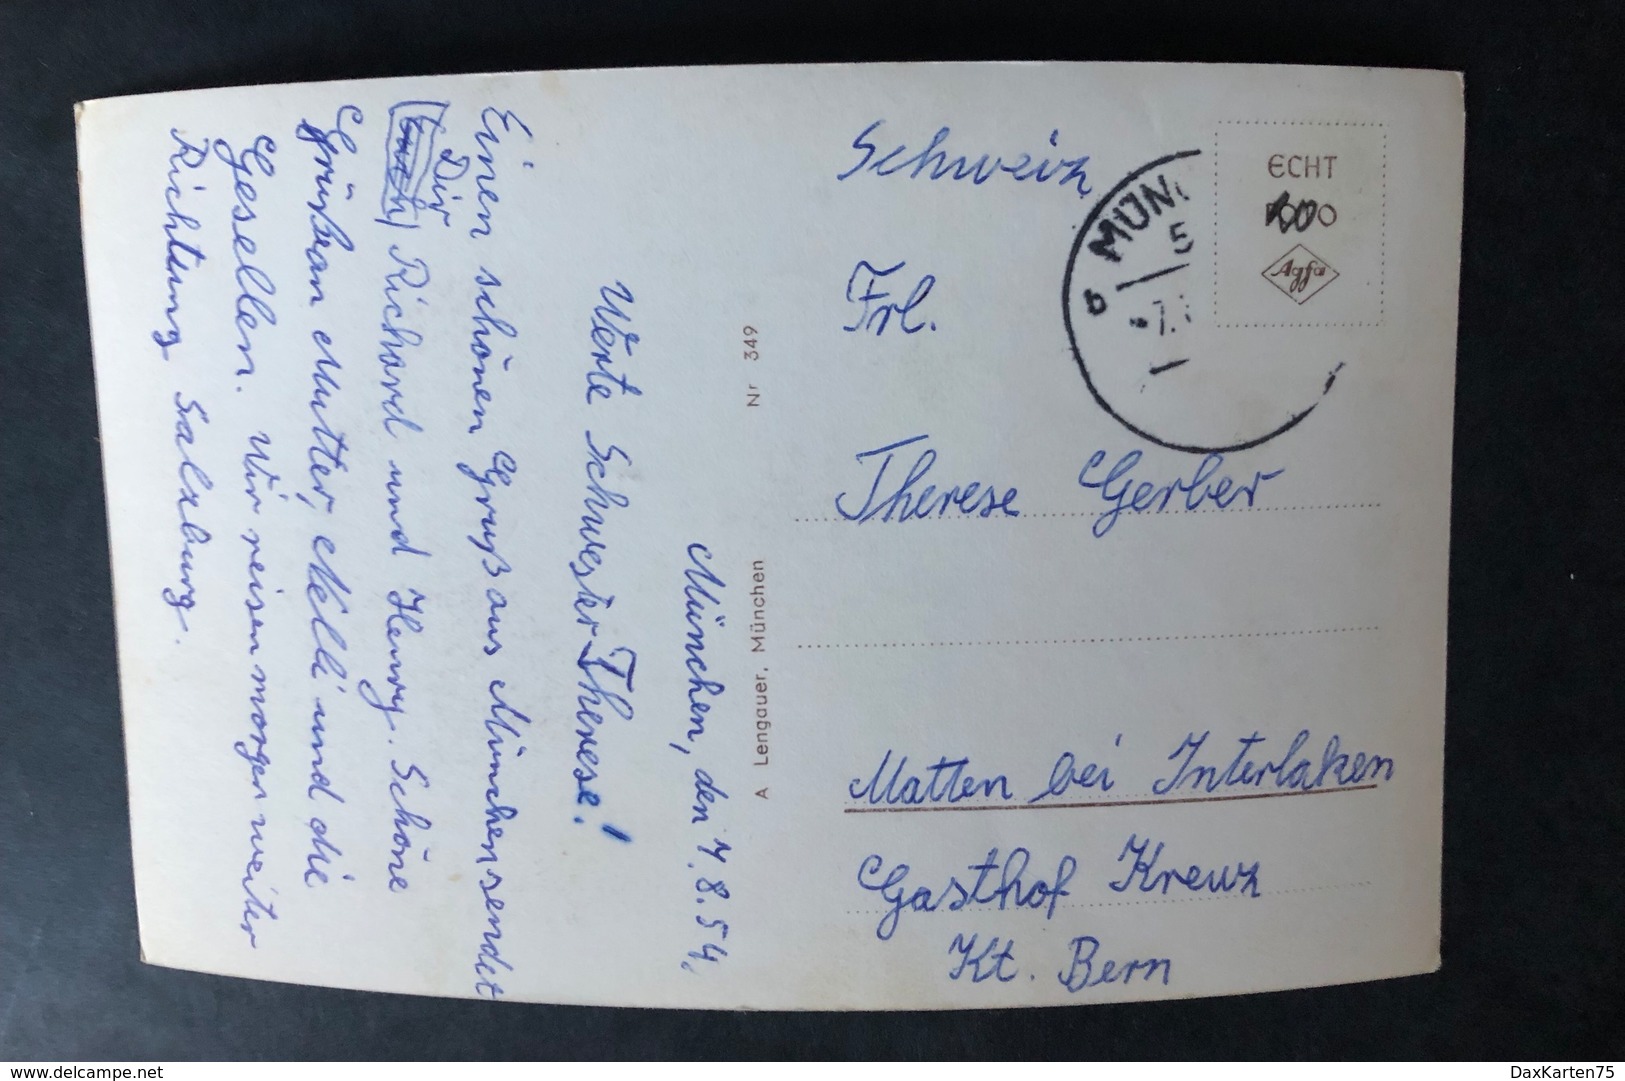 München, den 7.8.54.
Werte Schwester Therese!
Einen schönen Gruß aus München sendet
Dir
Richard und Henry. Schöne
Grüße an Mutter, Nelli und die
Gesellen. Wir reisen morgen weiter
Richtung Salzburg.
A Lengauer, München Nr 349
Schweiz
Frl.
Therese Gerber
Matten bei Interlaken
Gasthof Kreuz
Kt. Bern
ECHT
Agfa
MÜN
5
b
delcampe.net
DaxKarten75